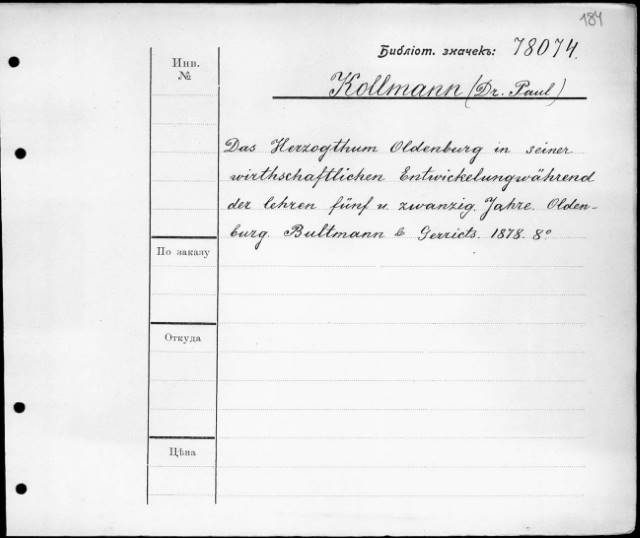 184
Библіот. значекъ: 78074.
Инв.
№
Kollmann (Dr. Paul)
Das Herzogthum Oldenburg in seiner
wirthschaftlichen Entwickelung während
der lehren fünf u. zwanzig Jahre. Olden-
burg. Bultmann & Gerriets. 1878. 8º
По заказу
Откуда
Цѣна